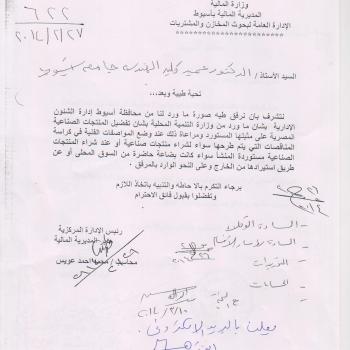 وزارة المالية
المديرية المالية بأسيوط
الإدارة العامة لبحوث المخازن والمشتريات
********************
٦٢٢
٢٠١٤/٢/٢٧
السيد الأستاذ / الدكتور عميد كلية الهندسة جامعة أسيوط
تحية طيبة وبعد...
نتشرف بان نرفق طيه صورة ما ورد لنا من محافظة أسيوط إدارة الشئون
الإدارية بشان ما ورد لنا من وزارة التنمية المحلية بشان تفضيل المنتجات الصناعية
المصرية على مثيلتها المستورد ومراعاة ذلك عند وضع المواصفات الفنية في كراسة
المناقصات التي يتم طرحها سواء لشراء منتجات صناعية أو عند شراء المنتجات
الصناعية مستوردة المنشأ سواء كانت بضاعة حاضرة من السوق المحلى أو عن
طريق استيرادها من الخارج وعلى النحو الوارد بالمرفق.
برجاء التكرم بالإحاطة والتنبيه باتخاذ اللازم
وتفضلوا بقبول فائق الاحترام
رئيس الإدارة المركزية
مدير المديرية المالية
محاسب / محمد احمد عويس
السادة الوكلاء
السادة رؤساء الأقسام
الحسابات
يعلن بالبريد الإلكتروني